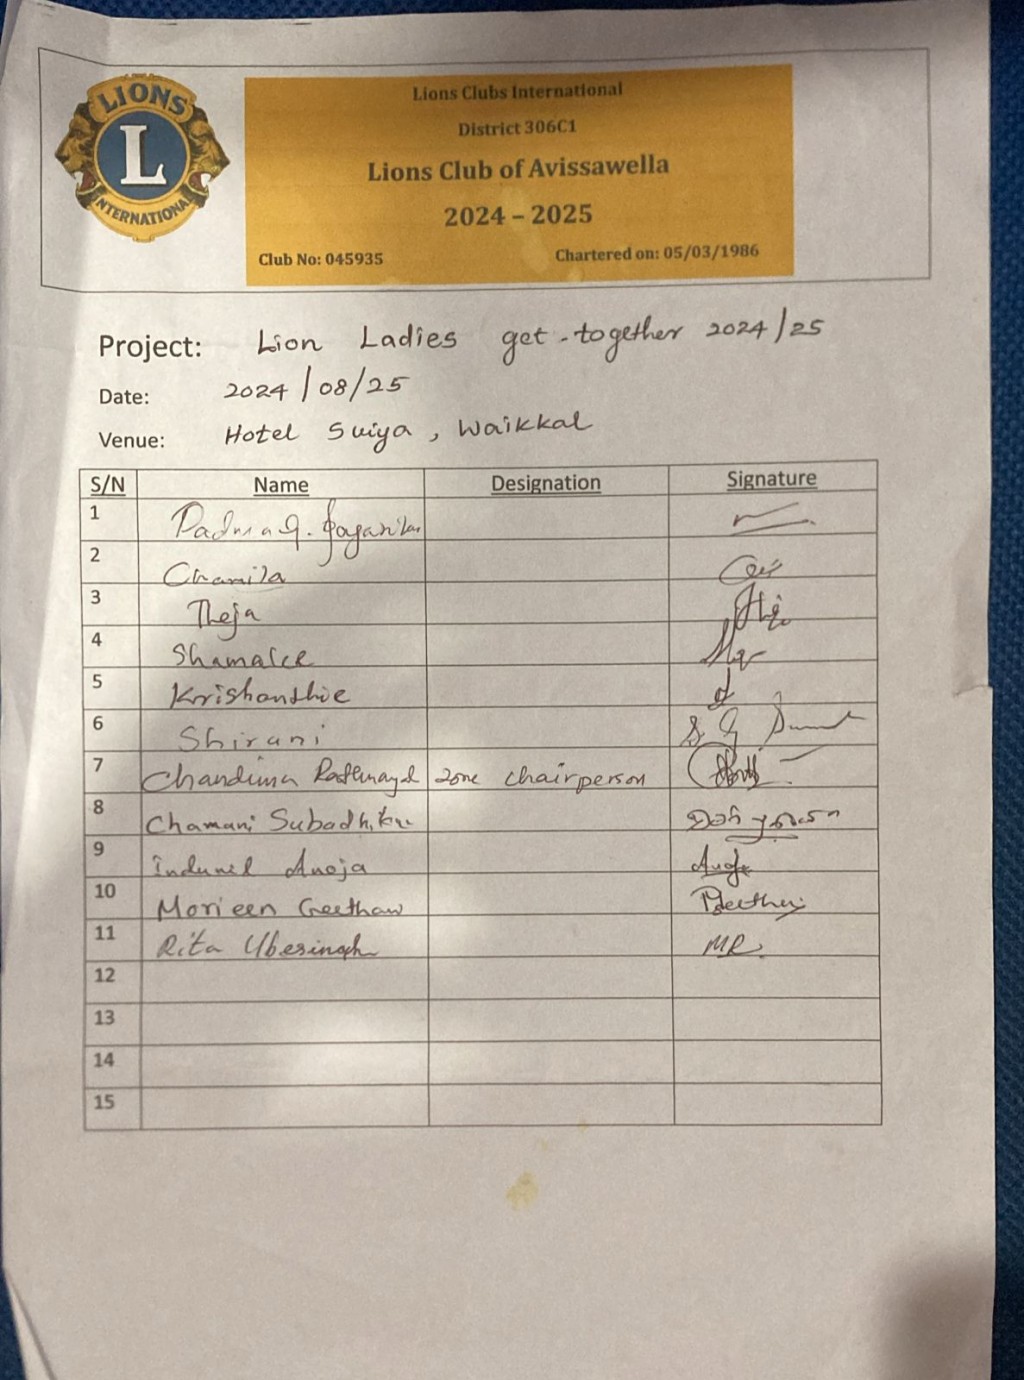 LIONS
L
INTERNATIONAL
Lions Clubs International
District 306C1
Lions Club of Avissawella
2024 – 2025
Club No: 045935 Chartered on: 05/03/1986
Project: Lion Ladies get-together 2024/25
Date: 2024/08/25
Venue: Hotel Suiya, Waikkal
S/N Name Designation Signature
1 Padma
2 Chamila
3 Theja
4 Shamalee
5 Krishanthie
6 Shirani
7 Chandima zone chairperson
8 Chamani
9 Indunil Anoja
10 Morieen
11 Rita MR
12
13
14
15